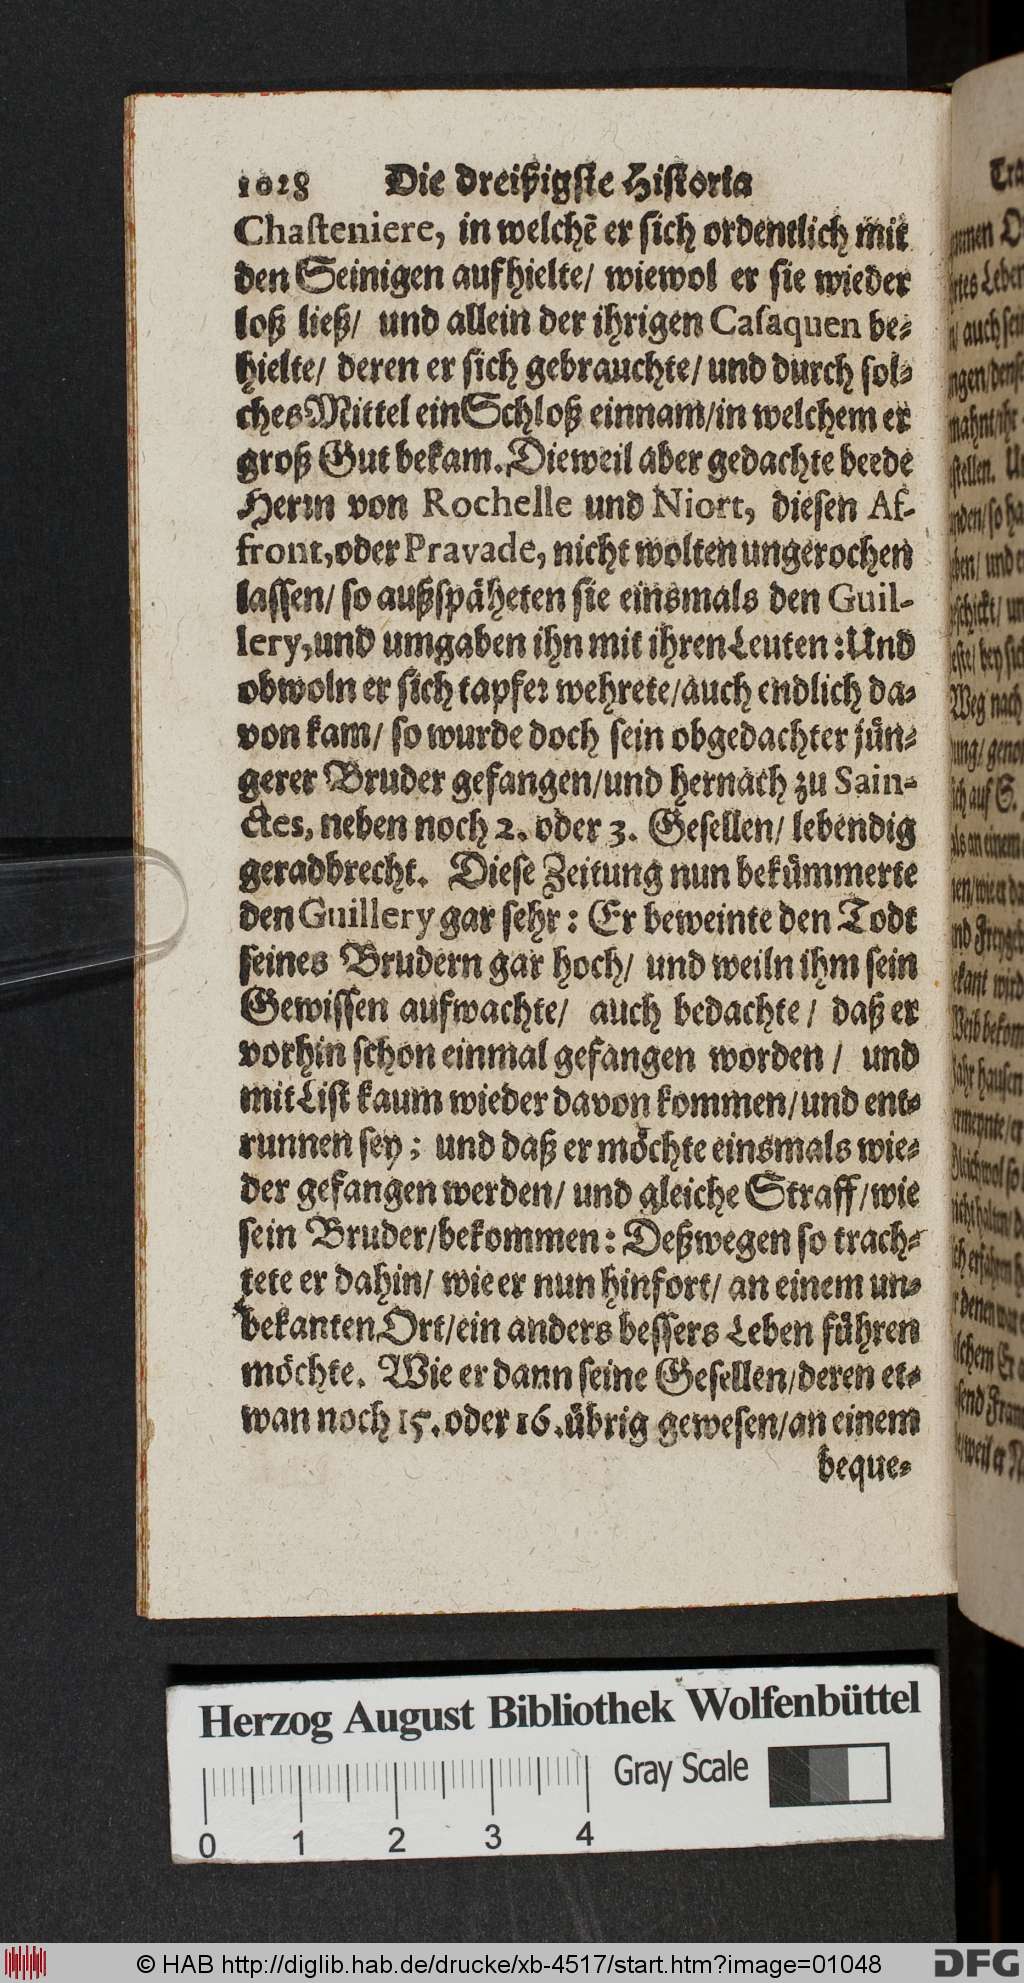 1028 Die dreißigste Historia
Chasteniere, in welchẽ er sich ordentlich mit
den Seinigen aufhielte/ wiewol er sie wieder
loß ließ/ und allein der ihrigen Casaquen be-
hielte/ deren er sich gebrauchte/ und durch sol-
ches Mittel ein Schloß einnam/in welchem er
groß Gut bekam. Dieweil aber gedachte beede
Herꝛn von Rochelle und Niort, diesen Af-
front, oder Pravade, nicht wolten ungerochen
lassen/ so außspäheten sie einsmals den Guil-
lery, und umgaben ihn mit ihren Leuten: Und
obwoln er sich tapfeꝛ wehrete/auch endlich da-
von kam/ so wurde doch sein obgedachter jün-
gerer Bruder gefangen/und hernach zu Sain-
ctes, neben noch 2. oder 3. Gesellen/ lebendig
geradbrecht. Diese Zeitung nun bekümmerte
den Guillery gar sehr: Er beweinte den Todt
seines Brudern gar hoch/ und weiln ihm sein
Gewissen aufwachte/ auch bedachte/ daß er
vorhin schon einmal gefangen worden/ und
mit List kaum wieder davon kommen/und ent-
runnen sey; und daß er möchte einsmals wie-
der gefangen werden/ und gleiche Straff/wie
sein Bruder/bekommen: Deßwegen so trach-
tete er dahin/ wie er nun hinfort/ an einem un-
bekanten Ort/ein anders bessers Leben führen
möchte. Wie er dann seine Gesellen/deren et-
wan noch 15. oder 16. übrig gewesen/an einem
beque-
Herzog August Bibliothek Wolfenbüttel
Gray Scale
0 1 2 3 4
© HAB http://diglib.hab.de/drucke/xb-4517/start.htm?image=01048
DFG